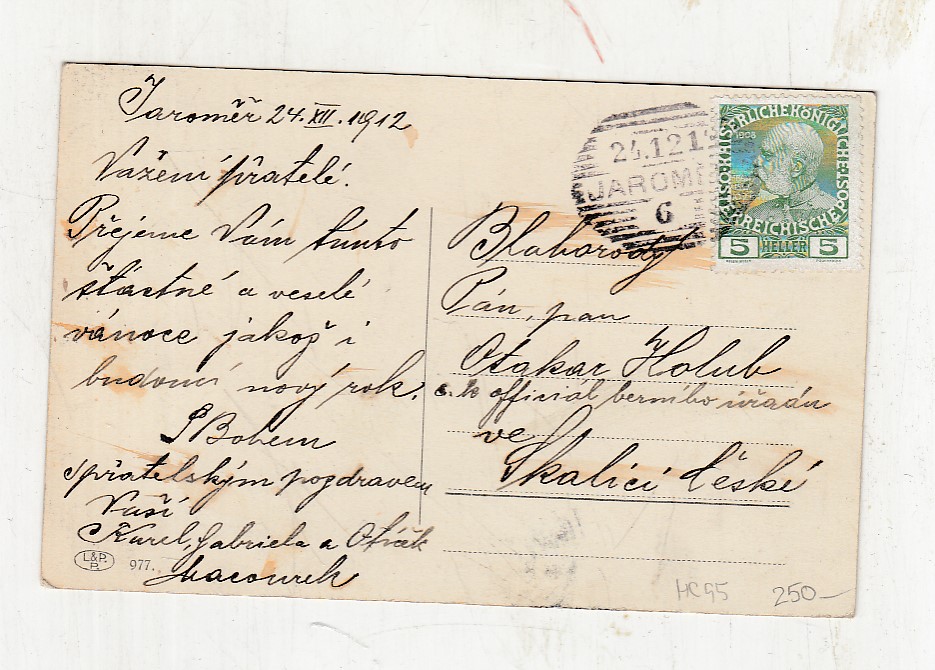 Jaroměř 24.XII.1912
Vážení přatelé.
Přejeme Vám tímto
šťastné a veselé
vánoce jakož i
budoucí nový rok.
S Bohem
spřatelským pozdravem
Vaší
Karel, Gabriela a
Macourek
L&P.
P.
977.
24.12.1
JAROM
6
KAIS.KÖNIGLICHE ÖSTERREICHISCHE POST
1908
5 HELLER 5
Blahorodý
Pán, pan
Otakar Holub
c. k. officiál berního úřadu
ve
Skalici České
HC95
250–